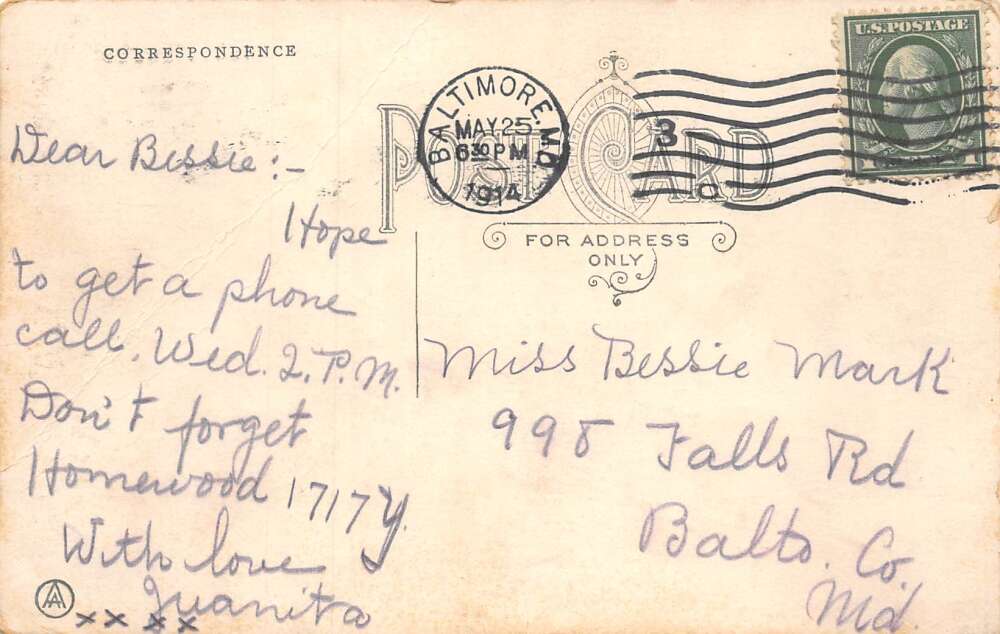 CORRESPONDENCE
U.S. POSTAGE
BALTIMORE, MD.
MAY 25
6 30 PM
1914
3
POST CARD
FOR ADDRESS
ONLY
Dear Bessie:-
Hope
to get a phone
call. Wed. 2. P.M.
Don't forget
Homewood 1717 Y.
With love
Juanita
xx xx
Miss Bessie Mark
998 Falls Rd
Balto. Co.
Md.